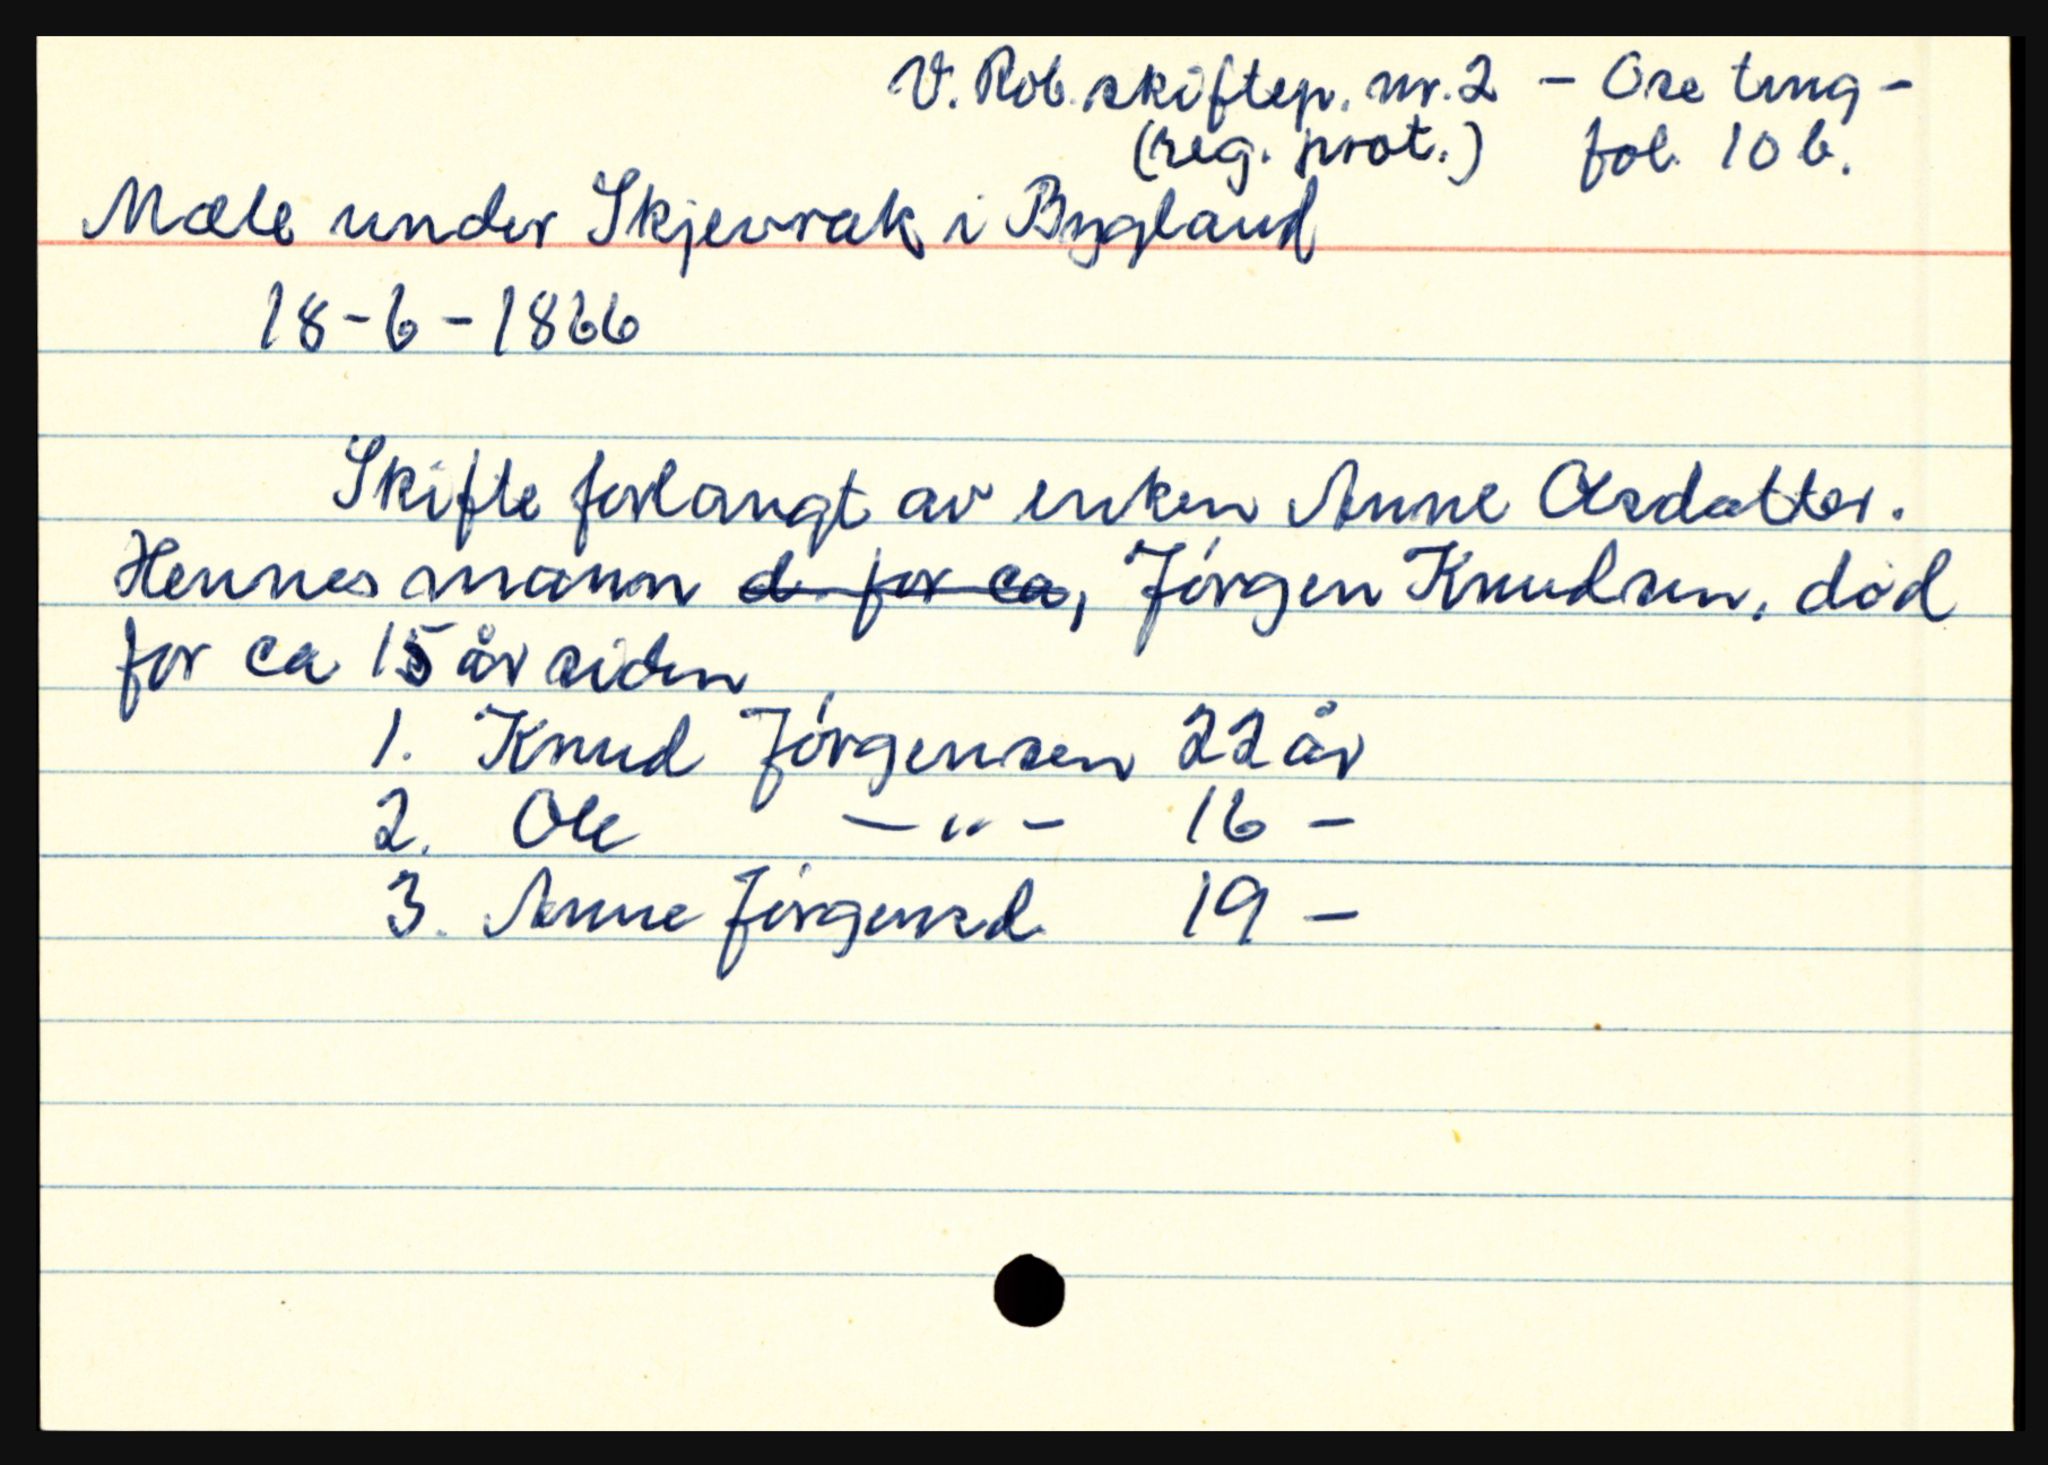 V. Rob. skiftep. nr. 2 - Ose ting -
(reg. prot.) fol. 10 b.
Mæle under Skjevrak i Bygland
18-6-1866
Skifte forlangt av enken Anne Olsdatter.
Hennes mann d. for ca, Jørgen Knudsen, død
for ca 15 år siden
1. Knud Jørgensen 22 år
2. Ole -"- 16 -
3. Anne Jørgensd. 19 -